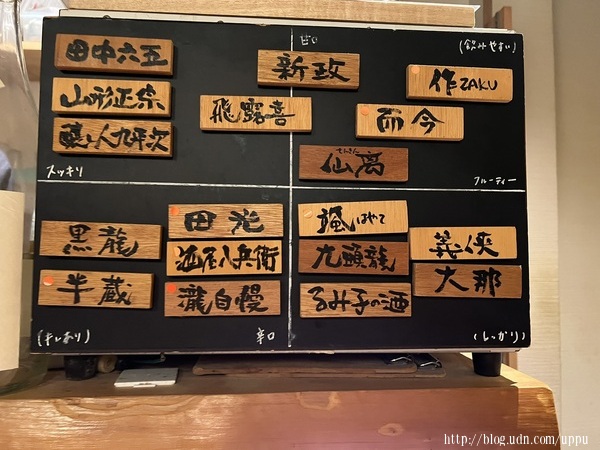 甘口
(飲みやすい)
田中六五
新政
作ZAKU
山形正宗
飛露喜
而今
醸し人九平次
せんきん
仙禽
スッキリ
フルーティー
田光
颯はやて
黒龍
義侠
酒屋八兵衛
九頭龍
半蔵
大那
瀧自慢
るみ子の酒
辛口
(しっかり)
http://blog.udn.com/uppu